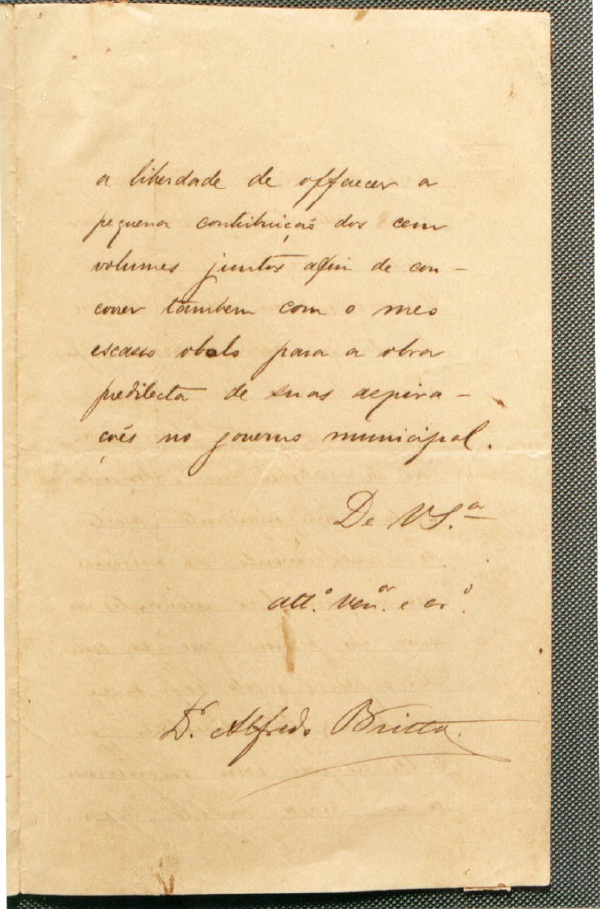 a liberdade de offerecer a
pequena contribuição dos cem
volumes juntos afim de con-
correr tambem com o meo
escasso obolo para a obra
predilecta de suas aspira-
ções no governo municipal.
De V S.ª
att.º ven.ºr e cr.º
Dr. Alfredo Britto.